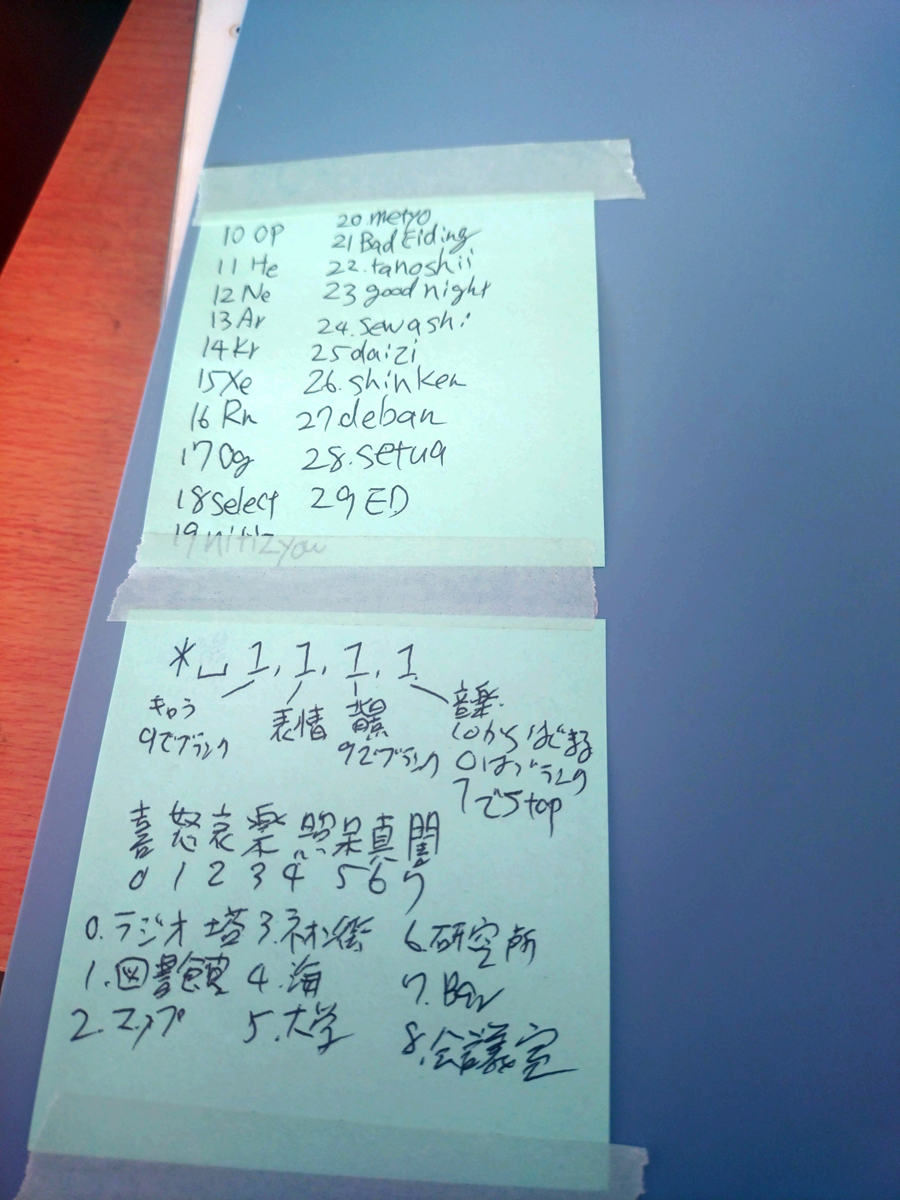 10 OP
11 He
12 Ne
13 Ar
14 Kr
15 Xe
16 Rn
17 Og
18 select
19 nitizyou
20. metyo
21 Bad Eiding
22. tanoshii
23 good night
24. sewashi
25 daizi
26. shinken
27 deban
28. setua
29 ED
*␣ 1, 1, 1, 1
きゃら
9でブランク
表情
背景
9でブランク
音楽
10からはじまる
0はブランク
1でstop
喜 怒 哀 楽 照 呆 真 闇
0 1 2 3 4 5 6 7
0. ラジオ塔 3. ネオン街 6. 研究所
1. 図書館 4. 海 7. Bar
2. マップ 5. 大学 8. 会議室